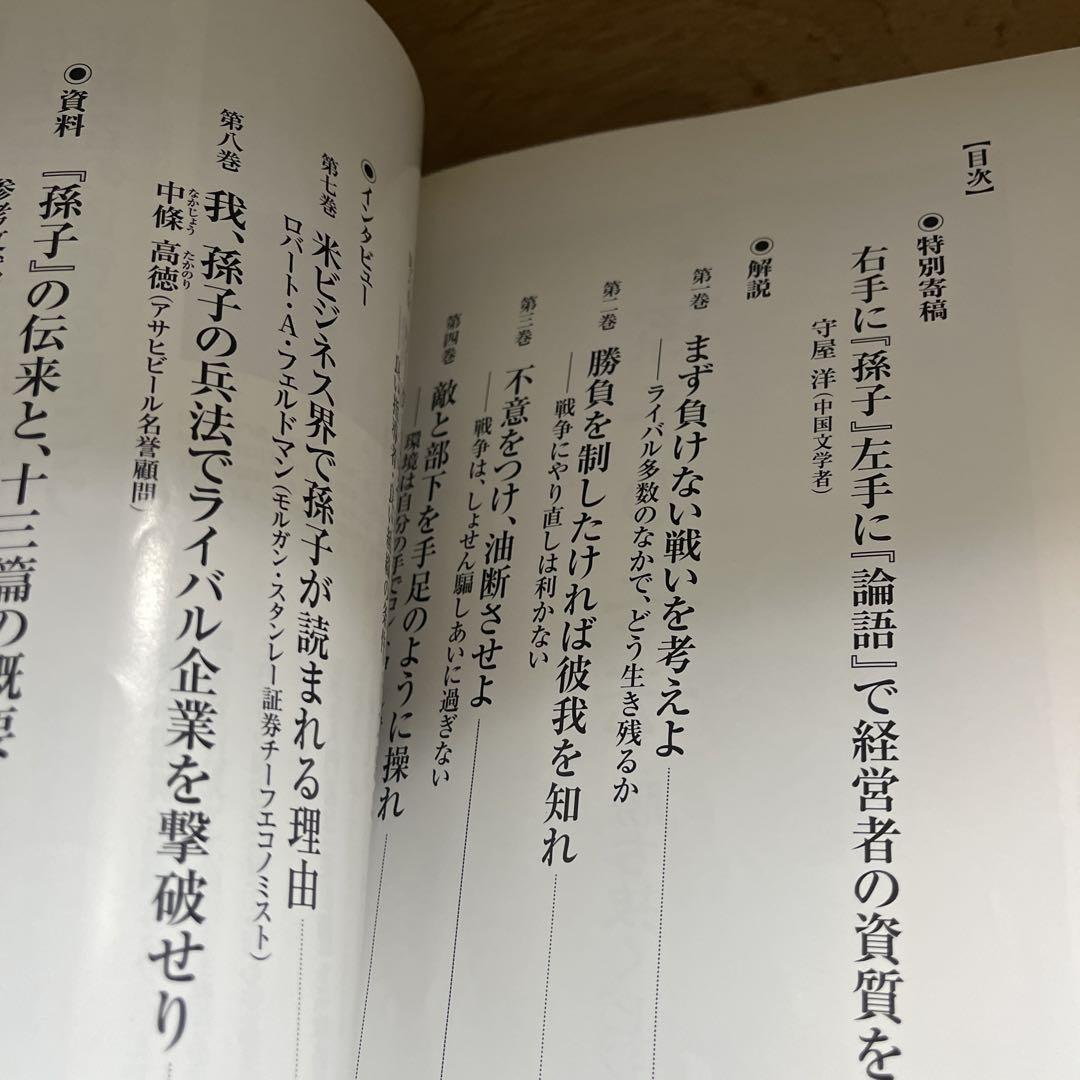 【目次】
◉特別寄稿
右手に『孫子』左手に『論語』で経営者の資質を
守屋 洋（中国文学者）
◉解説
第一巻 まず負けない戦いを考えよ
──ライバル多数のなかで、どう生き残るか
第二巻 勝負を制したければ彼我を知れ
──戦争にやり直しは利かない
第三巻 不意をつけ、油断させよ
──戦争は、しょせん騙しあいに過ぎない
第四巻 敵と部下を手足のように操れ
──環境は自分の手で
◉インタビュー
第七巻 米ビジネス界で孫子が読まれる理由
ロバート・A・フェルドマン（モルガン・スタンレー証券チーフエコノミスト）
第八巻 我、孫子の兵法でライバル企業を撃破せり
中條 高徳（アサヒビール名誉顧問）
なかじょう たかのり
◉資料
『孫子』の伝来と、十三篇の概要